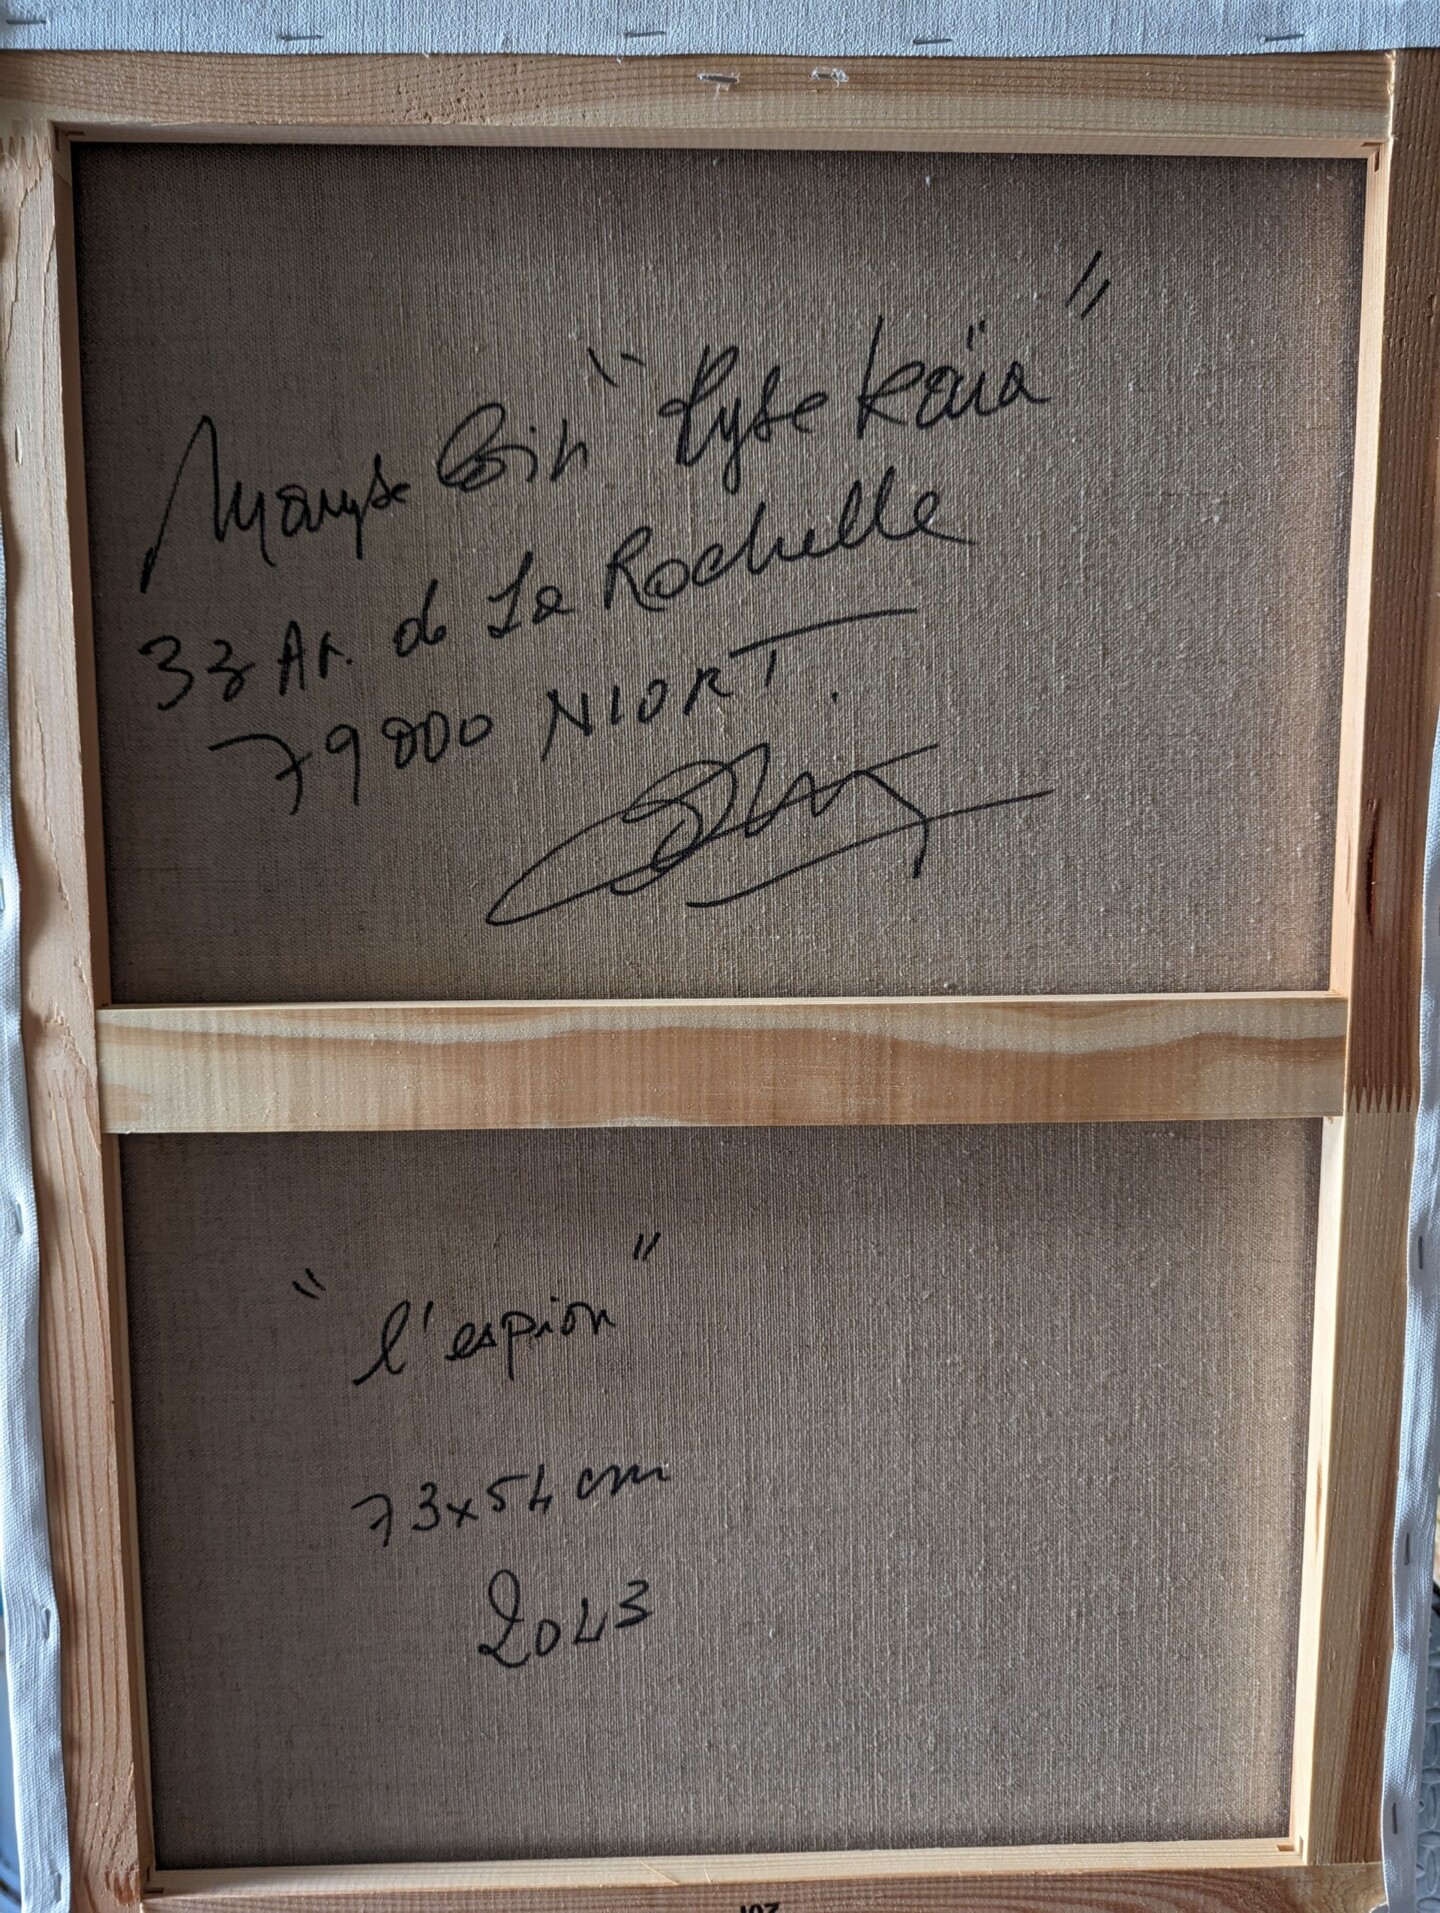 Maryse Bih "Lyse Kaïa"
33 Av. de La Rochelle
79000 NIORT.
"l'espion"
73x54 cm
2013